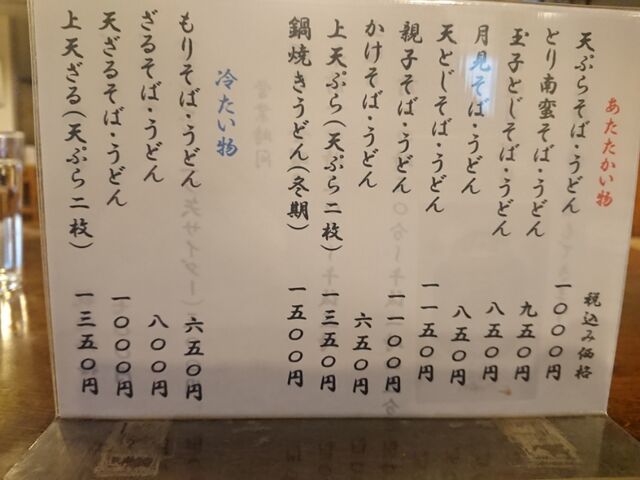 あたたかい物
税込み価格
天ぷらそば・うどん 一〇〇〇円
とり南蛮そば・うどん 九五〇円
玉子とじそば・うどん 八五〇円
月見そば・うどん 八五〇円
天とじそば・うどん 一一五〇円
親子そば・うどん 一一〇〇円
かけそば・うどん 六五〇円
上天ぷら(天ぷら二枚) 一三五〇円
鍋焼きうどん(冬期) 一五〇〇円
冷たい物
もりそば・うどん 六五〇円
ざるそば・うどん 八〇〇円
天ざるそば・うどん 一〇〇〇円
上天ざる(天ぷら二枚) 一三五〇円